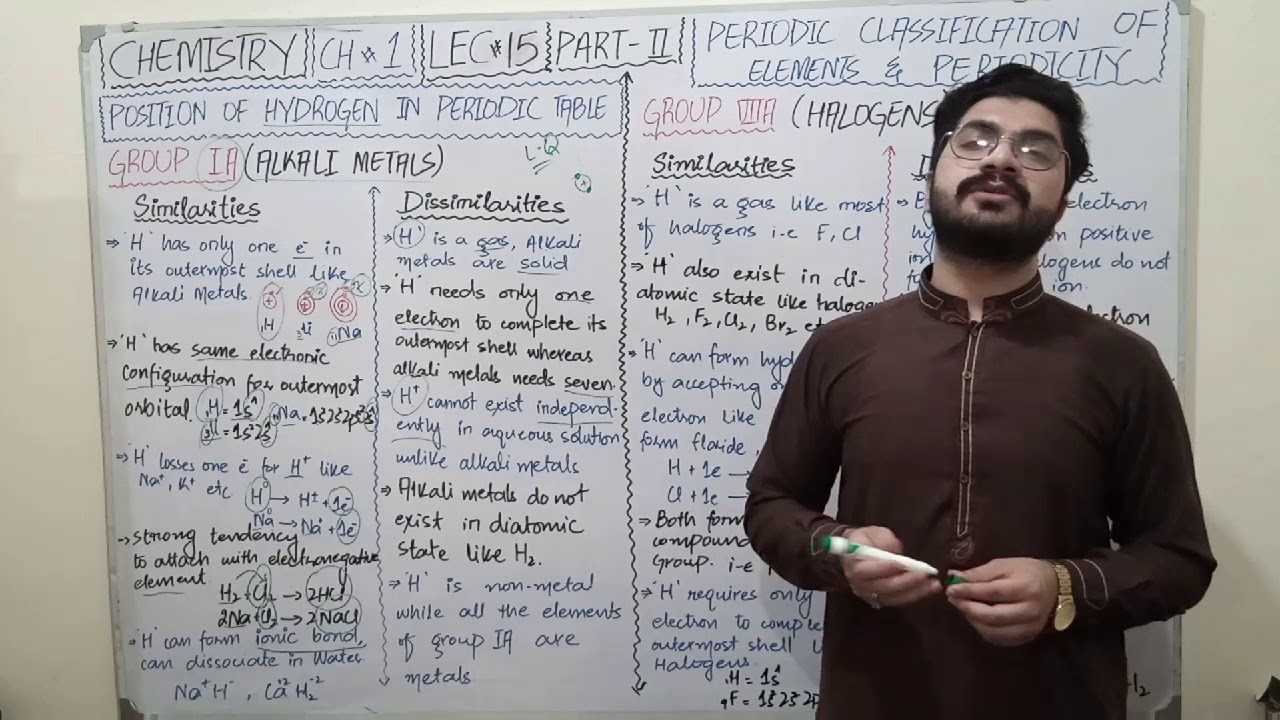 CHEMISTRY
CH # 1
LEC # 15
PART-II
PERIODIC CLASSIFICATION OF
ELEMENTS & PERIODICITY
POSITION OF HYDROGEN IN PERIODIC TABLE
GROUP IA (ALKALI METALS)
L.Q
Similarities
'H' has only one e⁻ in
its outermost shell like
Alkali Metals.
₁H
₃Li
₁₁Na
'H' has same electronic
configuration for outermost
orbital.
₁H = 1s¹
₃Li = 1s²2s¹
'H' losses one e⁻ for H⁺ like
Na⁺, K⁺ etc
H → H⁺ + 1e⁻
Na → Na⁺ + 1e⁻
strong tendency
to attach with electronegative
element.
H₂ + Cl₂ → 2HCl
2Na + Cl₂ → 2NaCl
'H' can form ionic bond,
can dissouate in water
Na⁺H⁻, Ca⁺²H₂⁻²
Dissimilarities
'H' is a gas, Alkali
metals are solid
'H' needs only one
electron to complete its
outermost shell whereas
alkali metals needs seven.
H⁺ cannot exist independ-
ently in aqueous solution
unlike alkali metals
Alkali metals do not
exist in diatomic
state like H₂.
'H' is non-metal
while all the elements
of group IA are
metals.
GROUP VIIA (HALOGENS
Similarities
'H' is a gas like most
of halogens i.e F, Cl
'H' also exist in di-
atomic state like haloge
H₂, F₂, Cl₂, Br₂
'H' can form
by accepting
electron like
form floride,
H + 1e →
Cl + 1e →
Both form
compound
Group. i-e
'H' requires only
electron to comple
outermost shell
Halogens.
₁H = 1s¹
₉F = 1s²2s²2p
electron
positive
do not
ion.